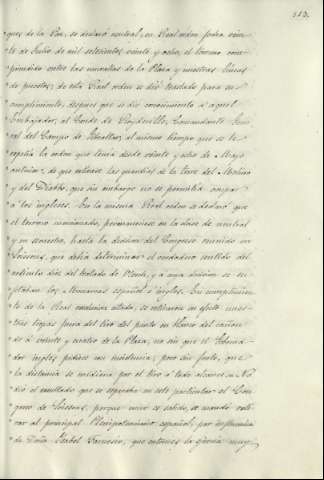 313.
ques de la Paz, se declaró neutral, en Real orden fecha vein-
" te de Julio de mil setecientos veinte y ocho, el terreno com-
" prendido entre las murallas de la Plaza y nuestras lineas
" de puestos; de esta Real orden se dió traslado para su
" cumplimiento, despues que se dió conocimiento á aquel
" Embajador, al Conde de Roydeville, Comandante Gene-
" ral del Campo de Gibraltar, al mismo tiempo que se le
" repetia la orden que tenia desde veinte y ocho de Mayo
" anterior, de que retirase las guardias de la Torre del Molino
" y del Diablo, que sin embargo no se permitia ocupar
" á los ingleses. En la misma Real orden se declaró que
" el terreno mencionado, permaneciese en la clase de neutral
" y en secuestro, hasta la decision del Congreso reunido en
" Soissons, que debia determinar el verdadero sentido del
" articulo dies del tratado de Utrech, y á cuya decision se su-
" jetaban los Monarcas español é inglés. En cumplimien-
" to de la Real resolucion citada, se retiraron en efecto nues-
" tras tropas fuera del tiro del punto en blanco del cañon
" de á veinte y cuatro de la Plaza, no sin que el Goberna-
" dor inglés pidiese con insistencia; pero sin fruto, que
" la distancia se midiera por el tiro á todo alcance. No
" dió el resultado que se esperaba en este particular el Con-
" greso de Soissons, porque como es sabido, se mandó reti-
" rar al principal Plenipotenciario español, por influencia
" de Doña Isabel Farnesio, que entonces la queria muy